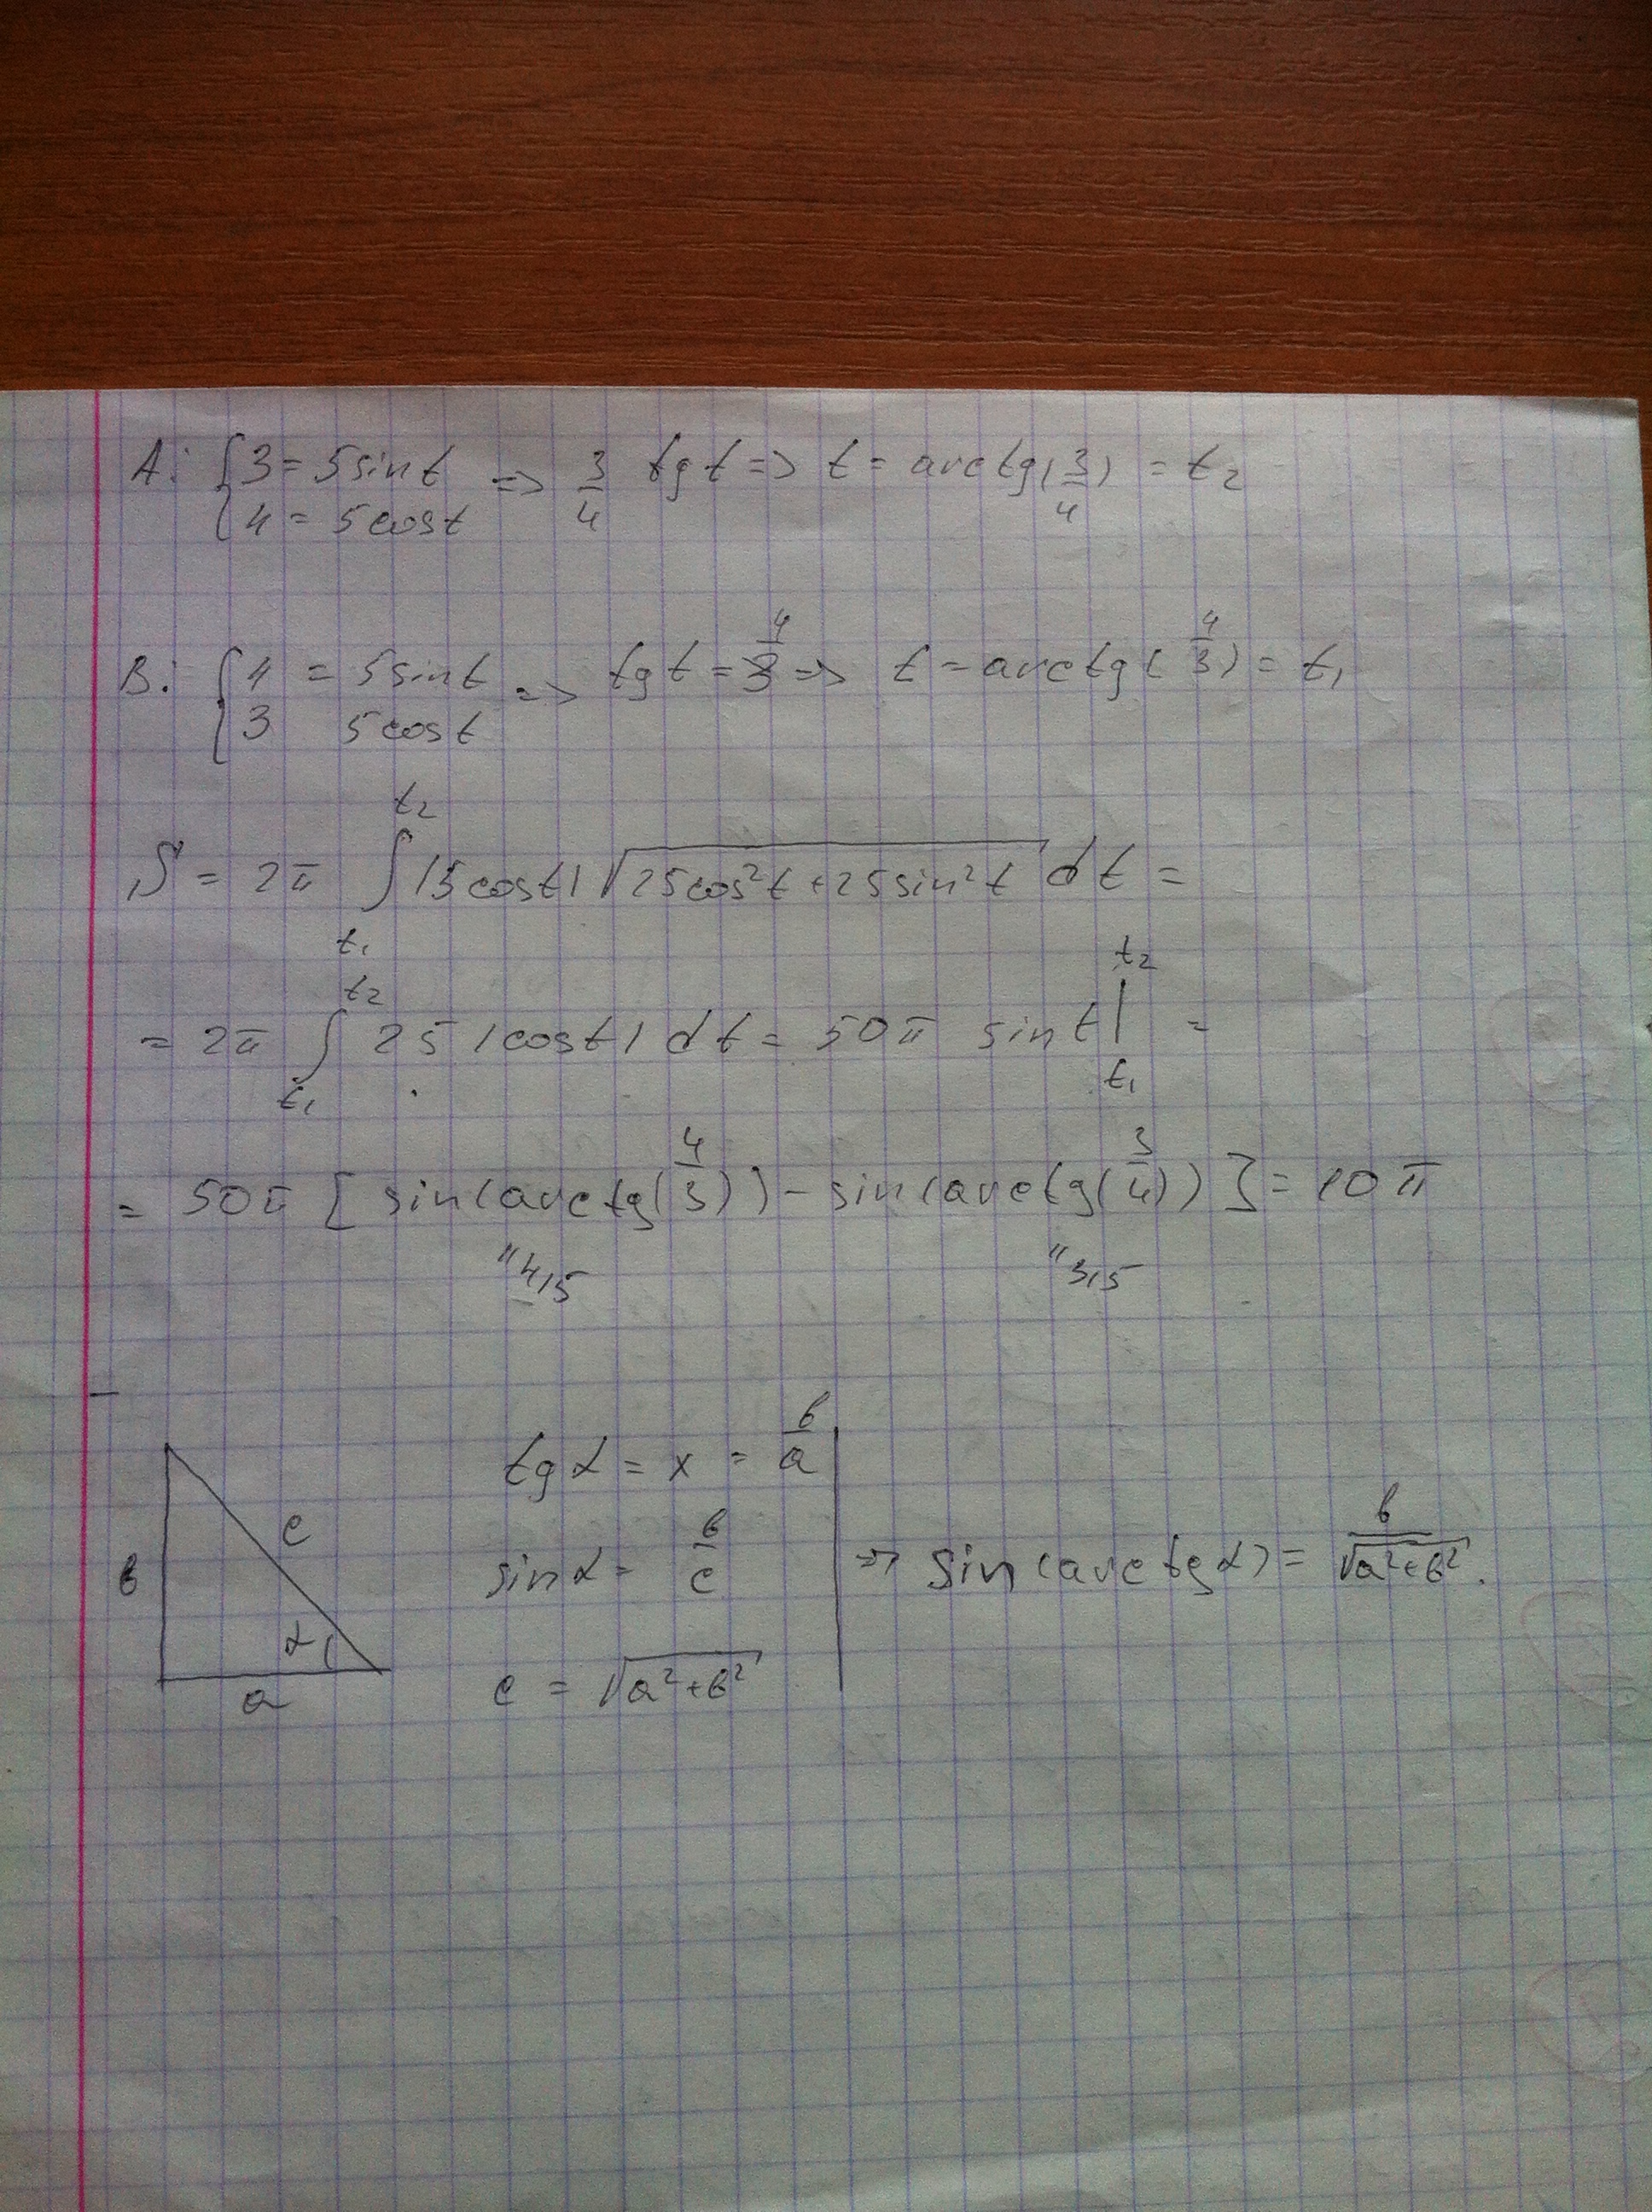 A: { 3 = 5 sin t
4 = 5 cos t => 3/4 tg t => t = arctg(3/4) = t₂
B: { 4 = 5 sin t
3 5 cos t => tg t = 4/3 => t = arctg(4/3) = t₁
S = 2π ∫_{t₁}^{t₂} |5 cos t| √(25 cos² t + 25 sin² t) dt =
= 2π ∫_{t₁}^{t₂} 25 |cos t| dt = 50π sin t |_{t₁}^{t₂} =
= 50π [ sin(arctg(4/3)) - sin(arctg(3/4)) ] = 10π
" 4/5 " 3/5
tg α = x = b/a
sin α = b/c => sin(arctg α) = b/√(a²+b²).
c = √(a²+b²)
b
c
α
a